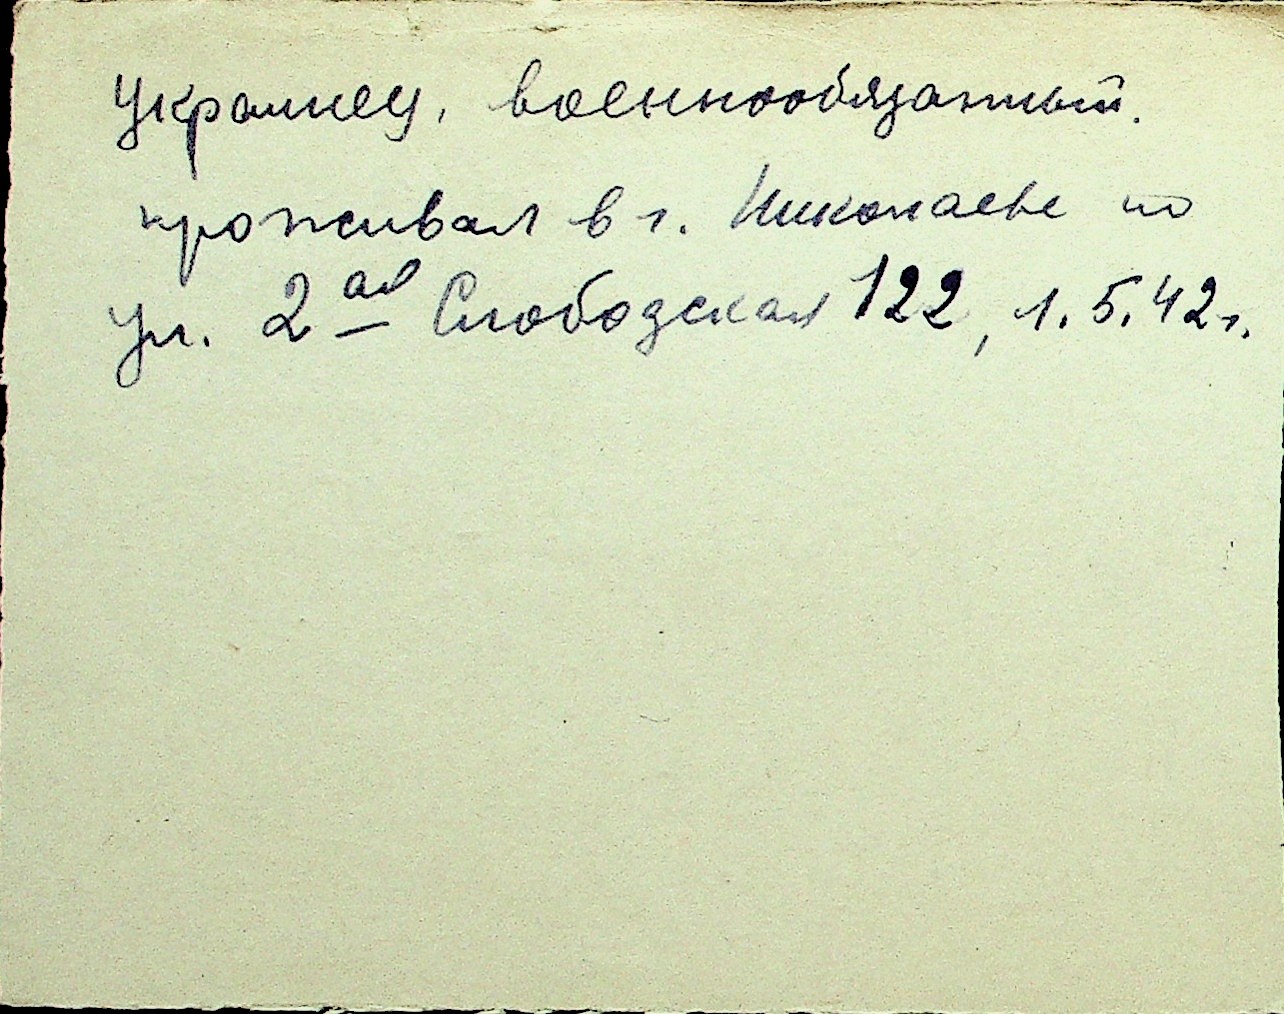 Украинец, военнообязанный.
проживал в г. Николаеве по
ул. 2ая Слободская 122, 1.5.42г.